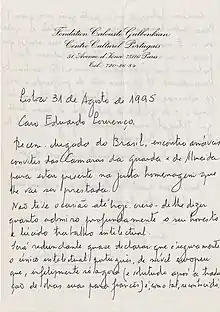 Fondation Calouste Gulbenkian
Centre Culturel Portugais
51, Avenue d'Iéna 75116 Paris
Tél. 720-86-84
Lisboa 31 de Agosto de 1995
Caro Eduardo Lourenço,
Recem-chegado do Brasil, encontro amáveis
convites das Camaras da Guarda e de Almeida
para estar presente na justa homenagem que
lhe vai ser prestada.
Não tive ocasião até hoje, creio, de lhe dizer
quanto admiro profundamente o seu honesto
e lúcido trabalho intelectual.
Será redundante quase declarar que é seguramente
o único intelectual português, de nível europeu
que, infelizmente só agora (e sobretudo após as tradu-
ções de obras suas para francês) é, como tal, reconhecido,